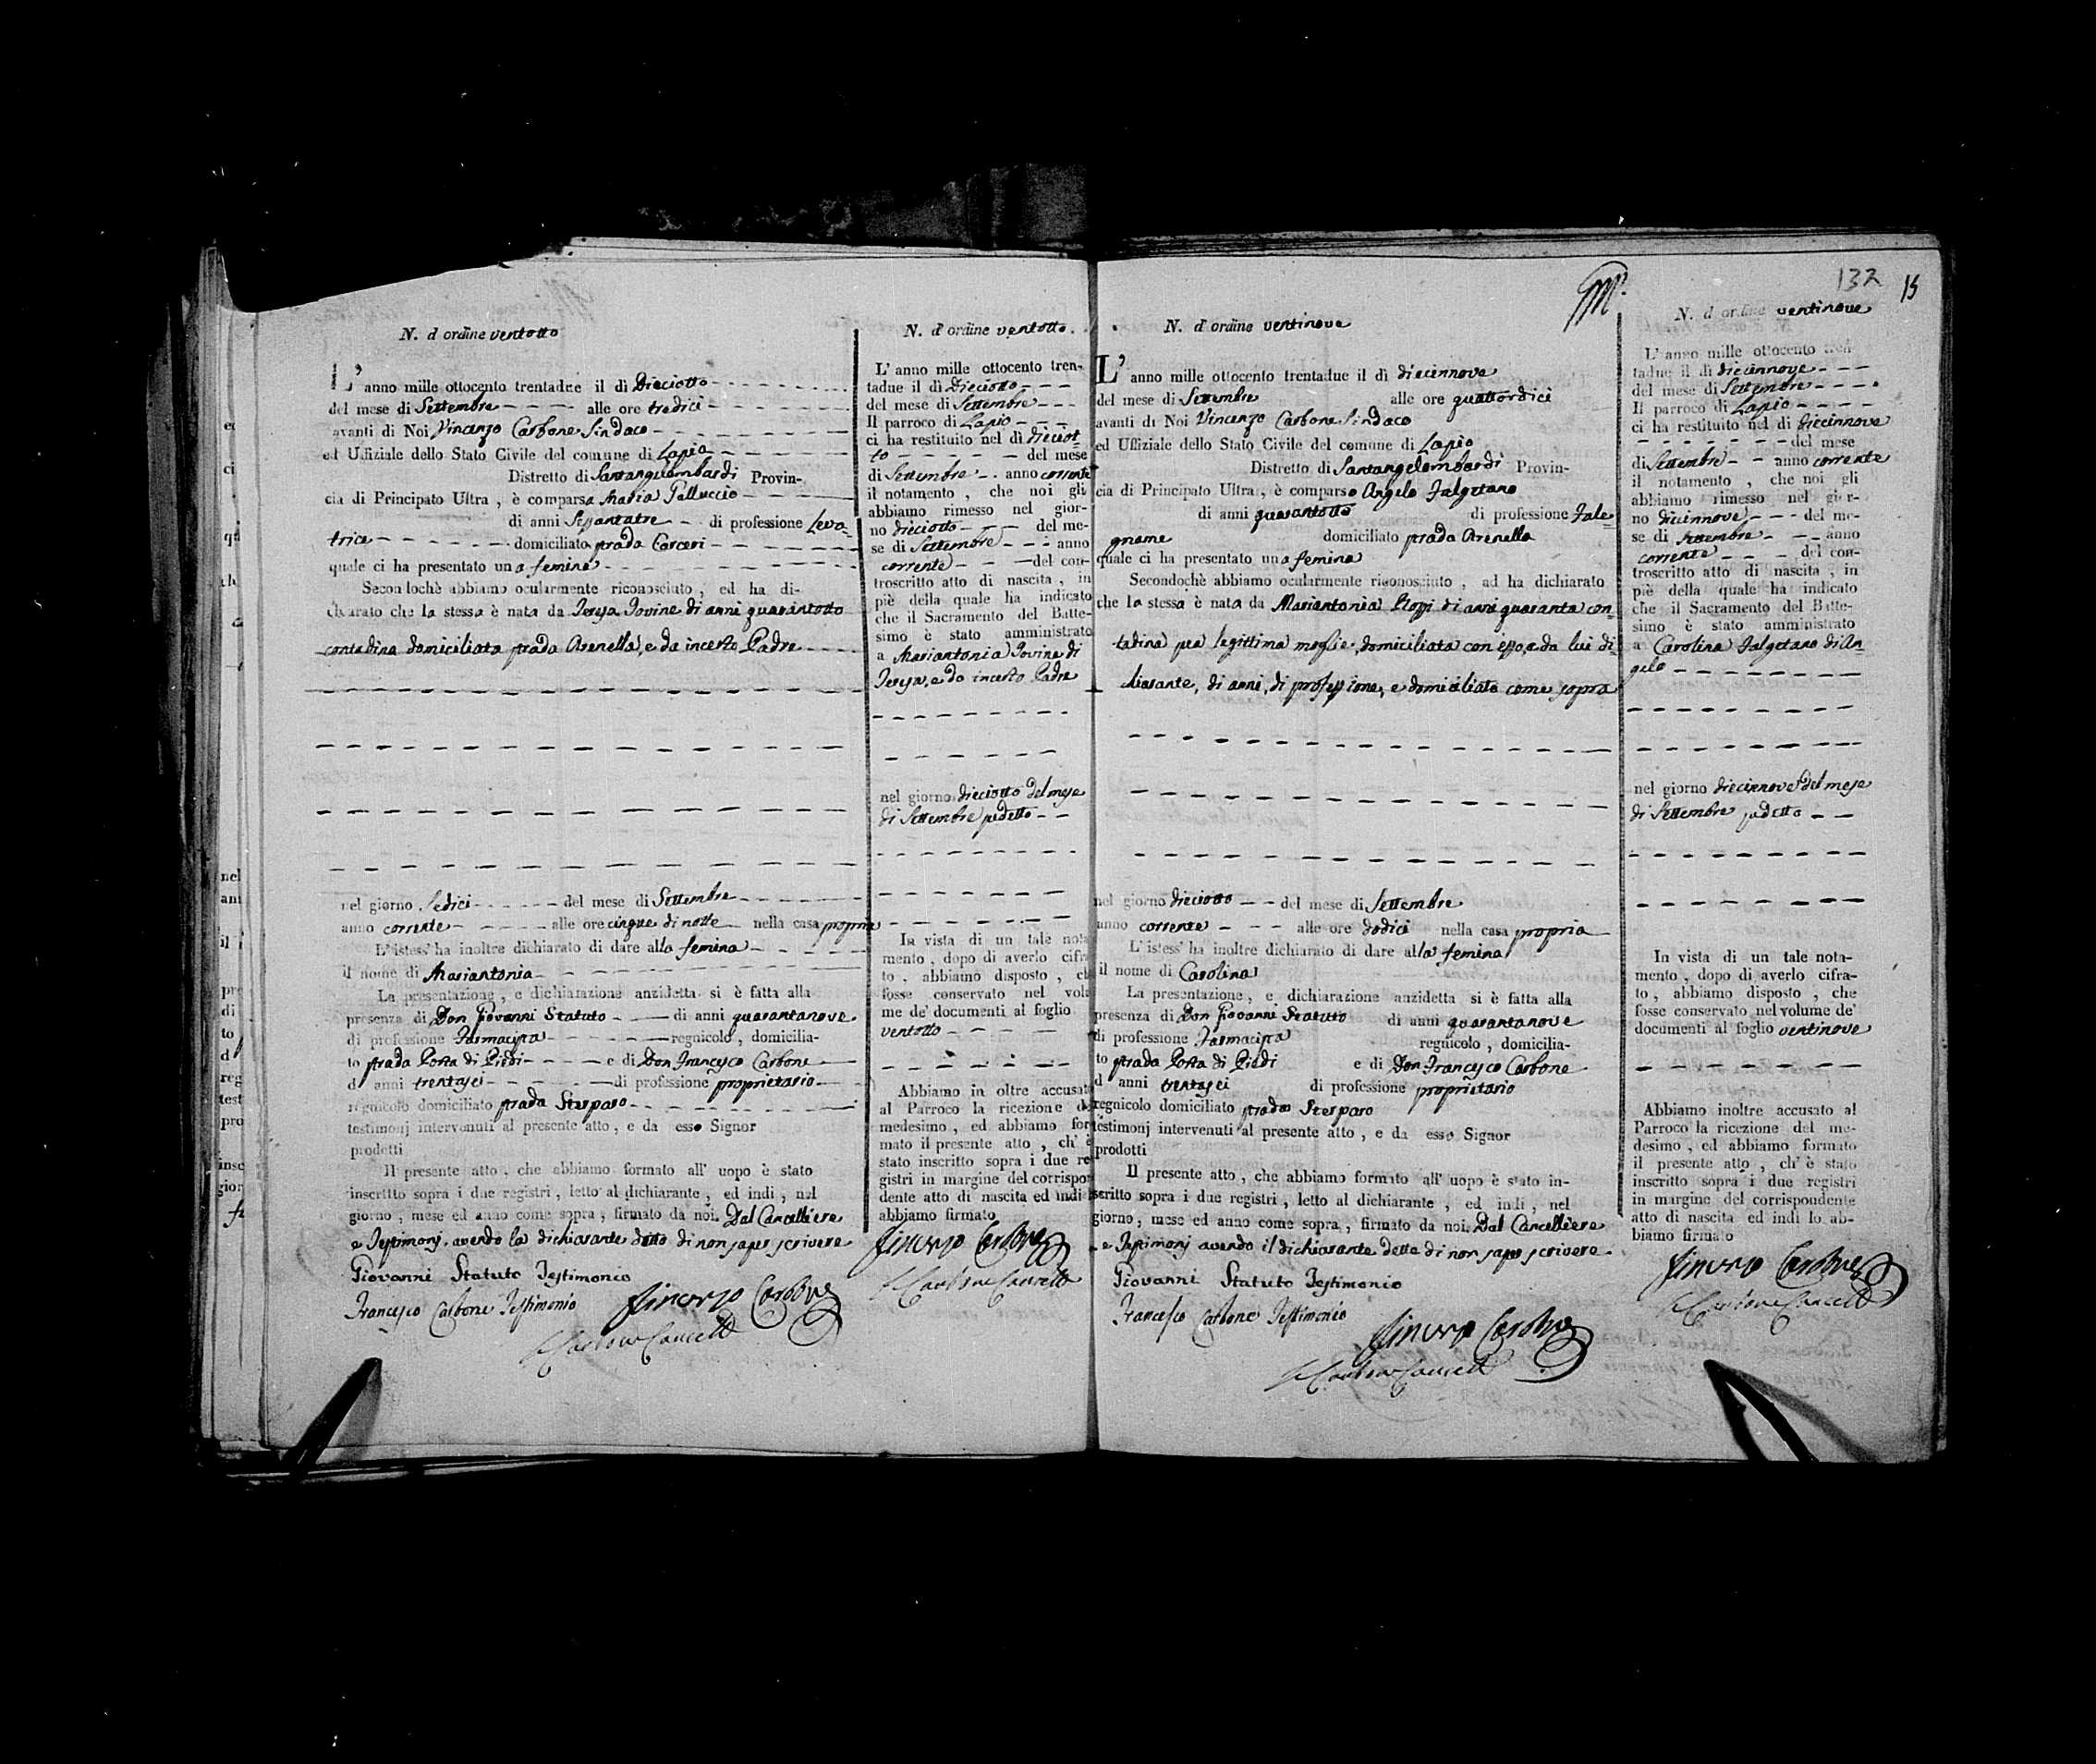 N. d'ordine ventotto
L' anno mille ottocento trentadue il dì Dieciotto
del mese di Settembre alle ore tredici
avanti di Noi Vincenzo Carbone Sindaco
ed Uffiziale dello Stato Civile del comune di Lapio
Distretto di Santangelombardi Provin-
cia di Principato Ultra, è comparsa Maria Galluccio
di anni Sessantatre di professione Leva-
trice domiciliata strada Carceri
quale ci ha presentato una femina
Secondochè abbiamo ocularmente riconosciuto, ed ha di-
chiarato che la stessa è nata da Teresa Iovine di anni quarantotto
contadina domiciliata strada Arenella, e da incerto Padre
nel giorno Sedici del mese di Settembre
anno corrente alle ore cinque di notte nella casa propria
L'istess' ha inoltre dichiarato di dare alla femina
il nome di Mariantonia
La presentazione, e dichiarazione anzidetta si è fatta alla
presenza di Don Giovanni Statuto di anni quarantanove
di professione Farmacista regnicolo, domicilia-
to strada Porta di Piedi e di Don Francesco Carbone
d anni trentasei di professione proprietario
regnicolo domiciliato strada Sterparo
testimonj intervenuti al presente atto, e da esso Signor
prodotti
Il presente atto, che abbiamo formato all' uopo è stato
inscritto sopra i due registri, letto al dichiarante, ed indi, nel
giorno, mese ed anno come sopra, firmato da noi, Dal Cancelliere
e Testimonj, avendo la dichiarante detto di non saper scrivere
Giovanni Statuto Testimonio
Francesco Carbone Testimonio Vincenzo Carbone
Carbone Cancell
N. d'ordine ventotto.
L' anno mille ottocento tren-
tadue il dì Dieciotto
del mese di Settembre
Il parroco di Lapio
ci ha restituito nel dì dieciot-
to del mese
di Settembre anno corrente
il notamento, che noi gli
abbiamo rimesso nel gior-
no dieciotto del me-
se di Settembre anno
corrente del con-
troscritto atto di nascita, in
piè della quale ha indicato
che il Sacramento del Batte-
simo è stato amministrato
a Mariantonia Iovine di
Teresa, e da incerto Padre
nel giorno dieciotto del mese
di Settembre sudetto
In vista di un tale nota
mento, dopo di averlo cifra
to, abbiamo disposto, ch
fosse conservato nel volu
me de' documenti al foglio
ventotto
Abbiamo in oltre accusato
al Parroco la ricezione de
medesimo, ed abbiamo for
mato il presente atto, ch' è
stato inscritto sopra i due re
gistri in margine del corrispon
dente atto di nascita ed indi
abbiamo firmato
Vincenzo Carbone
Carbone Cancell
132 15
N. d'ordine ventinove
L' anno mille ottocento trentadue il dì diecinnove
del mese di Settembre alle ore quattordici
avanti di Noi Vincenzo Carbone Sindaco
ed Uffiziale dello Stato Civile del comune di Lapio
Distretto di Santangelombardi Provin-
cia di Principato Ultra, è comparso Angelo Falgetano
di anni quarantotto di professione Fale-
gname domiciliato strada Arenella
quale ci ha presentato una femina
Secondochè abbiamo ocularmente riconosciuto, ad ha dichiarato
che la stessa è nata da Mariantonia di anni quaranta con-
tadina sua legittima moglie, domiciliata con esso, e da lui di-
chiarante, di anni, di professione, e domiciliato come sopra
nel giorno dieciotto del mese di Settembre
anno corrente alle ore dodici nella casa propria
L'istess' ha inoltre dichiarato di dare alla femina
il nome di Carolina
La presentazione, e dichiarazione anzidetta si è fatta alla
presenza di Don Giovanni Statuto di anni quarantanove
di professione Farmacista regnicolo, domicilia-
to strada Porta di Piedi e di Don Francesco Carbone
d anni trentasei di professione proprietario
regnicolo domiciliato strada Sterparo
testimonj intervenuti al presente atto, e da esso Signor
prodotti
Il presente atto, che abbiamo formato all' uopo è stato in-
scritto sopra i due registri, letto al dichiarante, ed indi, nel
giorno, mese ed anno come sopra, firmato da noi, Dal Cancelliere
e Testimonj avendo il dichiarante dette di non saper scrivere
Giovanni Statuto Testimonio
Francesco Carbone Testimonio
Vincenzo Carbone
Carbone Cancell
N. d'ordine ventinove
L' anno mille ottocento tren
tadue il dì diecinnove
del mese di Settembre
Il parroco di Lapio
ci ha restituito nel dì diecinnove
del mese
di Settembre anno corrente
il notamento, che noi gli
abbiamo rimesso nel gior-
no diecinnove del me-
se di Settembre anno
corrente del con-
troscritto atto di nascita, in
piè della quale ha indicato
che il Sacramento del Batte-
simo è stato amministrato
a Carolina Falgetano di An-
gelo
nel giorno diecinnove del mese
di Settembre sudetto
In vista di un tale nota-
mento, dopo di averlo cifra-
to, abbiamo disposto, che
fosse conservato nel volume de'
documenti al foglio ventinove
Abbiamo inoltre accusato al
Parroco la ricezione del me-
desimo, ed abbiamo formato
il presente atto, ch' è stato
inscritto sopra i due registri
in margine del corrispondente
atto di nascita ed indi lo ab-
biamo firmato
Vincenzo Carbone
Carbone Cancell